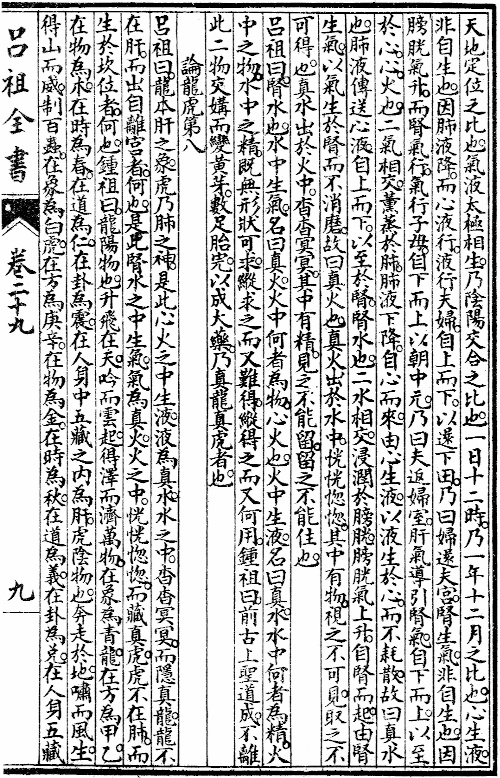 天地定位之比也氣液太極相生乃陰陽交合之比也一日十二時乃一年十二月之比也心生液
非自生也因肺液降而心液行液行夫婦自上而下以還下田乃曰婦還夫宮腎生氣非自生也因
膀胱氣升而腎氣行氣行子母自下而上以朝中元乃曰夫返婦室肝氣導引腎氣自下而上以至
於心心火也二氣相交薰蒸於肺肺液下降自心而來由心生液以液生於心而不耗散故曰真水
也肺液傳送心液自上而下以至於腎腎水也二水相交浸潤於膀胱膀胱氣上升自腎而起由腎
生氣以氣生於腎而不消磨故曰真火也真火出於水中恍恍惚惚其中有物視之不可見取之不
可得也真水出於火中杳杳冥冥其中有精見之不能留留之不能住也
呂祖曰腎水也水中生氣名曰真火火中何者為物心火也火中生液名曰真水水中何者為精火
中之物水中之精既無形狀可求縱求之而又難得縱得之而又何用鍾祖曰前古上聖道成不離
此二物交媾而變黃芽數足胎完以成大藥乃真龍真虎者也
論龍虎第八
呂祖曰龍本肝之象虎乃肺之神是此心火之中生液液為真水水之中杳杳冥冥而隱真龍龍不
在肝而出自離宮者何也是此腎水之中生氣氣為真火火之中恍恍惚惚而藏真虎虎不在肺而
生於坎位者何也鍾祖曰龍陽物也升飛在天吟而雲起得澤而濟萬物在象為青龍在方為甲乙
在物為木在時為春在道為仁在卦為震在人身中五藏之內為肝虎陰物也奔走於地嘯而風生
得山而威制百蟲在象為白虎在方為庚辛在物為金在時為秋在道為義在卦為兌在人身五藏
呂祖全書
卷二十九
九